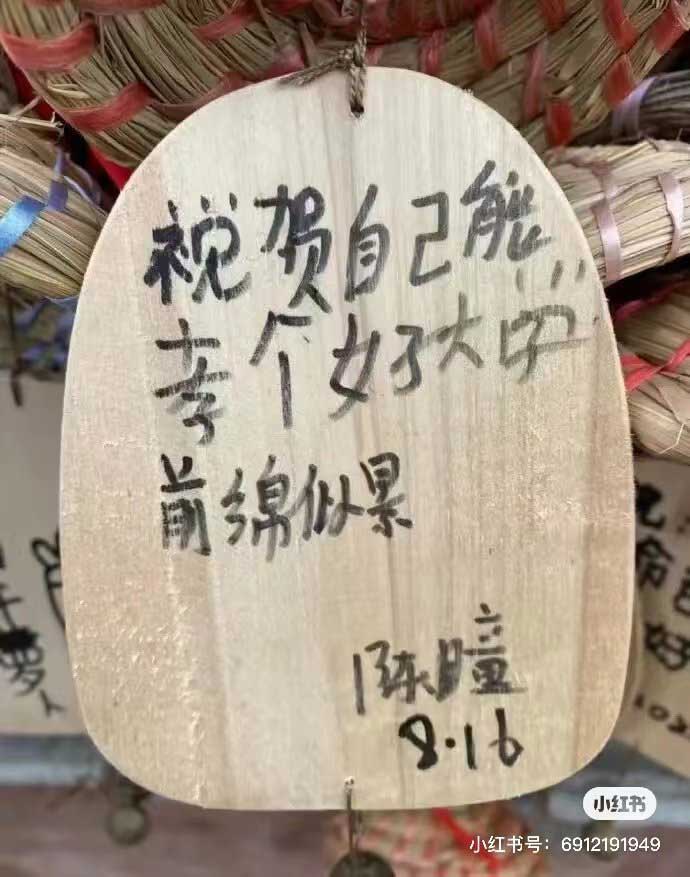 祝贺自己能
考个好大学
前绵似景
陈瞳
8.16
命
好
小红书
小红书号：6912191949